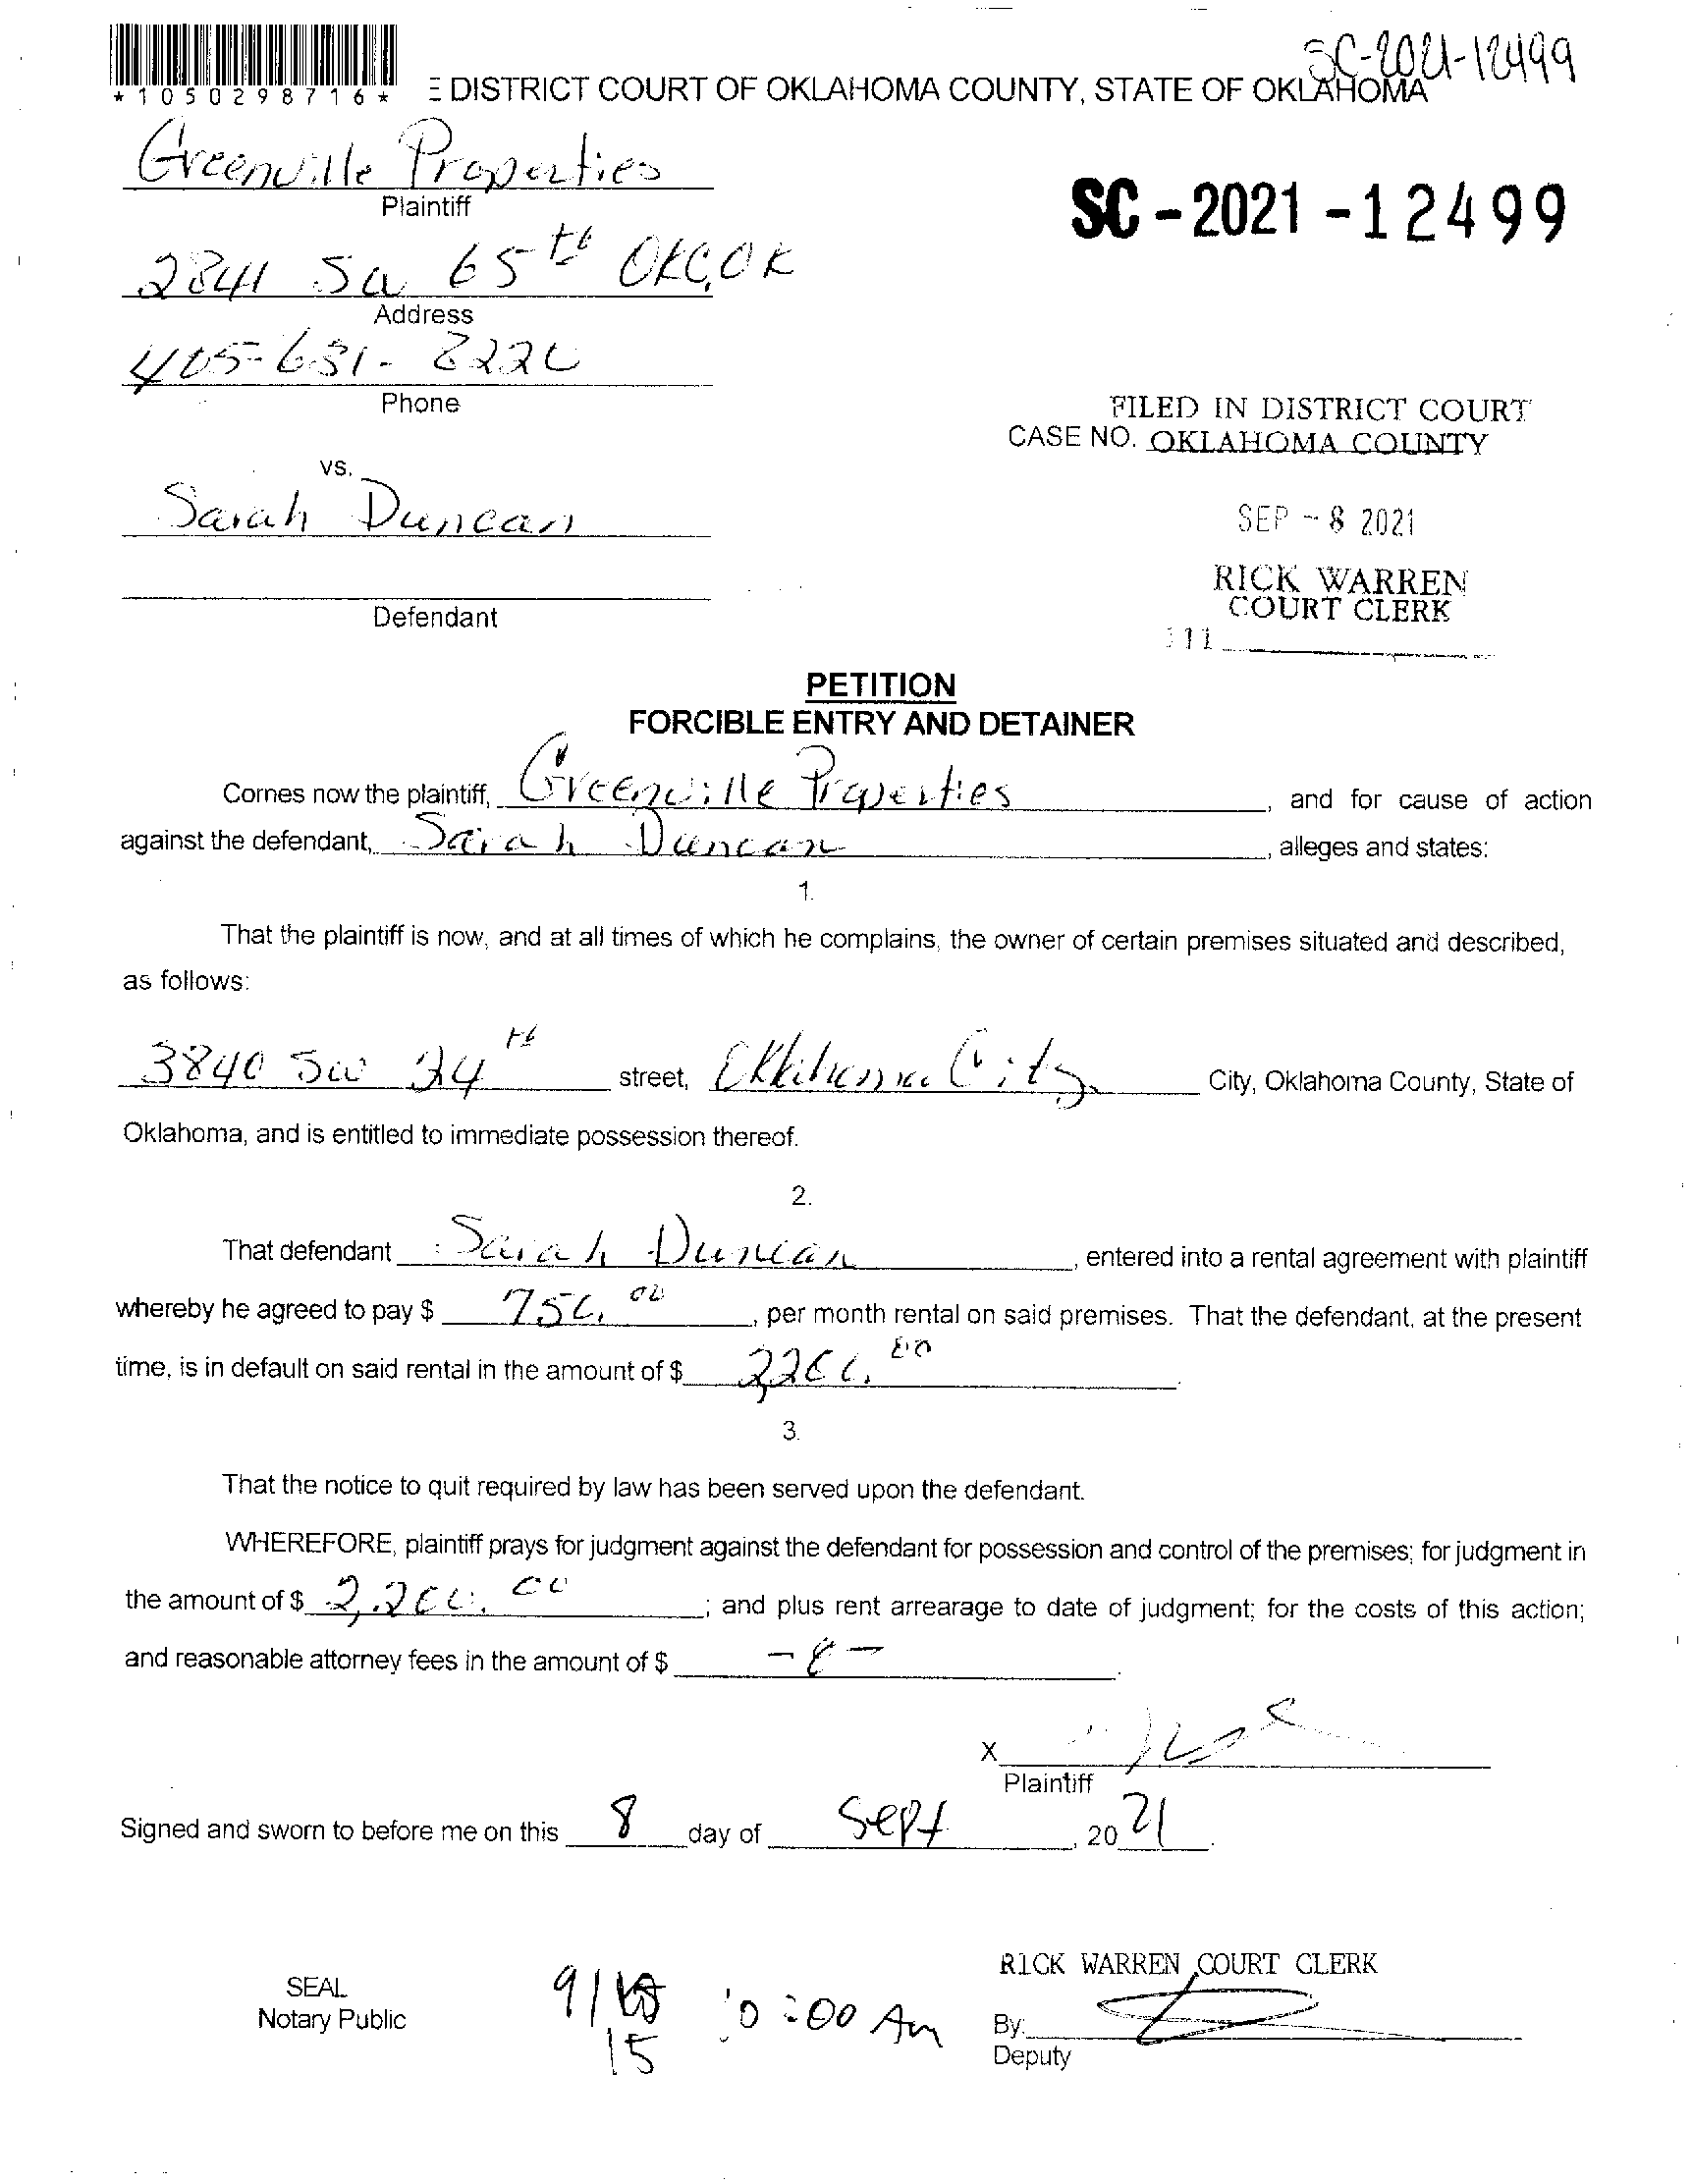 SC-2021-12499
*1050298716*
E DISTRICT COURT OF OKLAHOMA COUNTY, STATE OF OKLAHOMA
Greenville Properties
Plaintiff
SC-2021-12499
2841 SW 65th OKC, OK
Address
405-631-2220
Phone
FILED IN DISTRICT COURT
CASE NO. OKLAHOMA COUNTY
vs.
Sarah Duncan
SEP - 8 2021
RICK WARREN
COURT CLERK
Defendant
111
PETITION
FORCIBLE ENTRY AND DETAINER
Comes now the plaintiff, Greenville Properties, and for cause of action
against the defendant, Sarah Duncan, alleges and states:
1.
That the plaintiff is now, and at all times of which he complains, the owner of certain premises situated and described,
as follows:
3840 SW 24th street, Oklahoma City City, Oklahoma County, State of
Oklahoma, and is entitled to immediate possession thereof.
2.
That defendant Sarah Duncan, entered into a rental agreement with plaintiff
whereby he agreed to pay $ 750.00, per month rental on said premises. That the defendant, at the present
time, is in default on said rental in the amount of $ 2,200.00
3.
That the notice to quit required by law has been served upon the defendant.
WHEREFORE, plaintiff prays for judgment against the defendant for possession and control of the premises; for judgment in
the amount of $ 2,200.00; and plus rent arrearage to date of judgment; for the costs of this action;
and reasonable attorney fees in the amount of $ -0-.
X
Plaintiff
Signed and sworn to before me on this 8 day of Sept, 2021.
RICK WARREN COURT CLERK
SEAL
Notary Public
9/15 10:00 Am
By:
Deputy